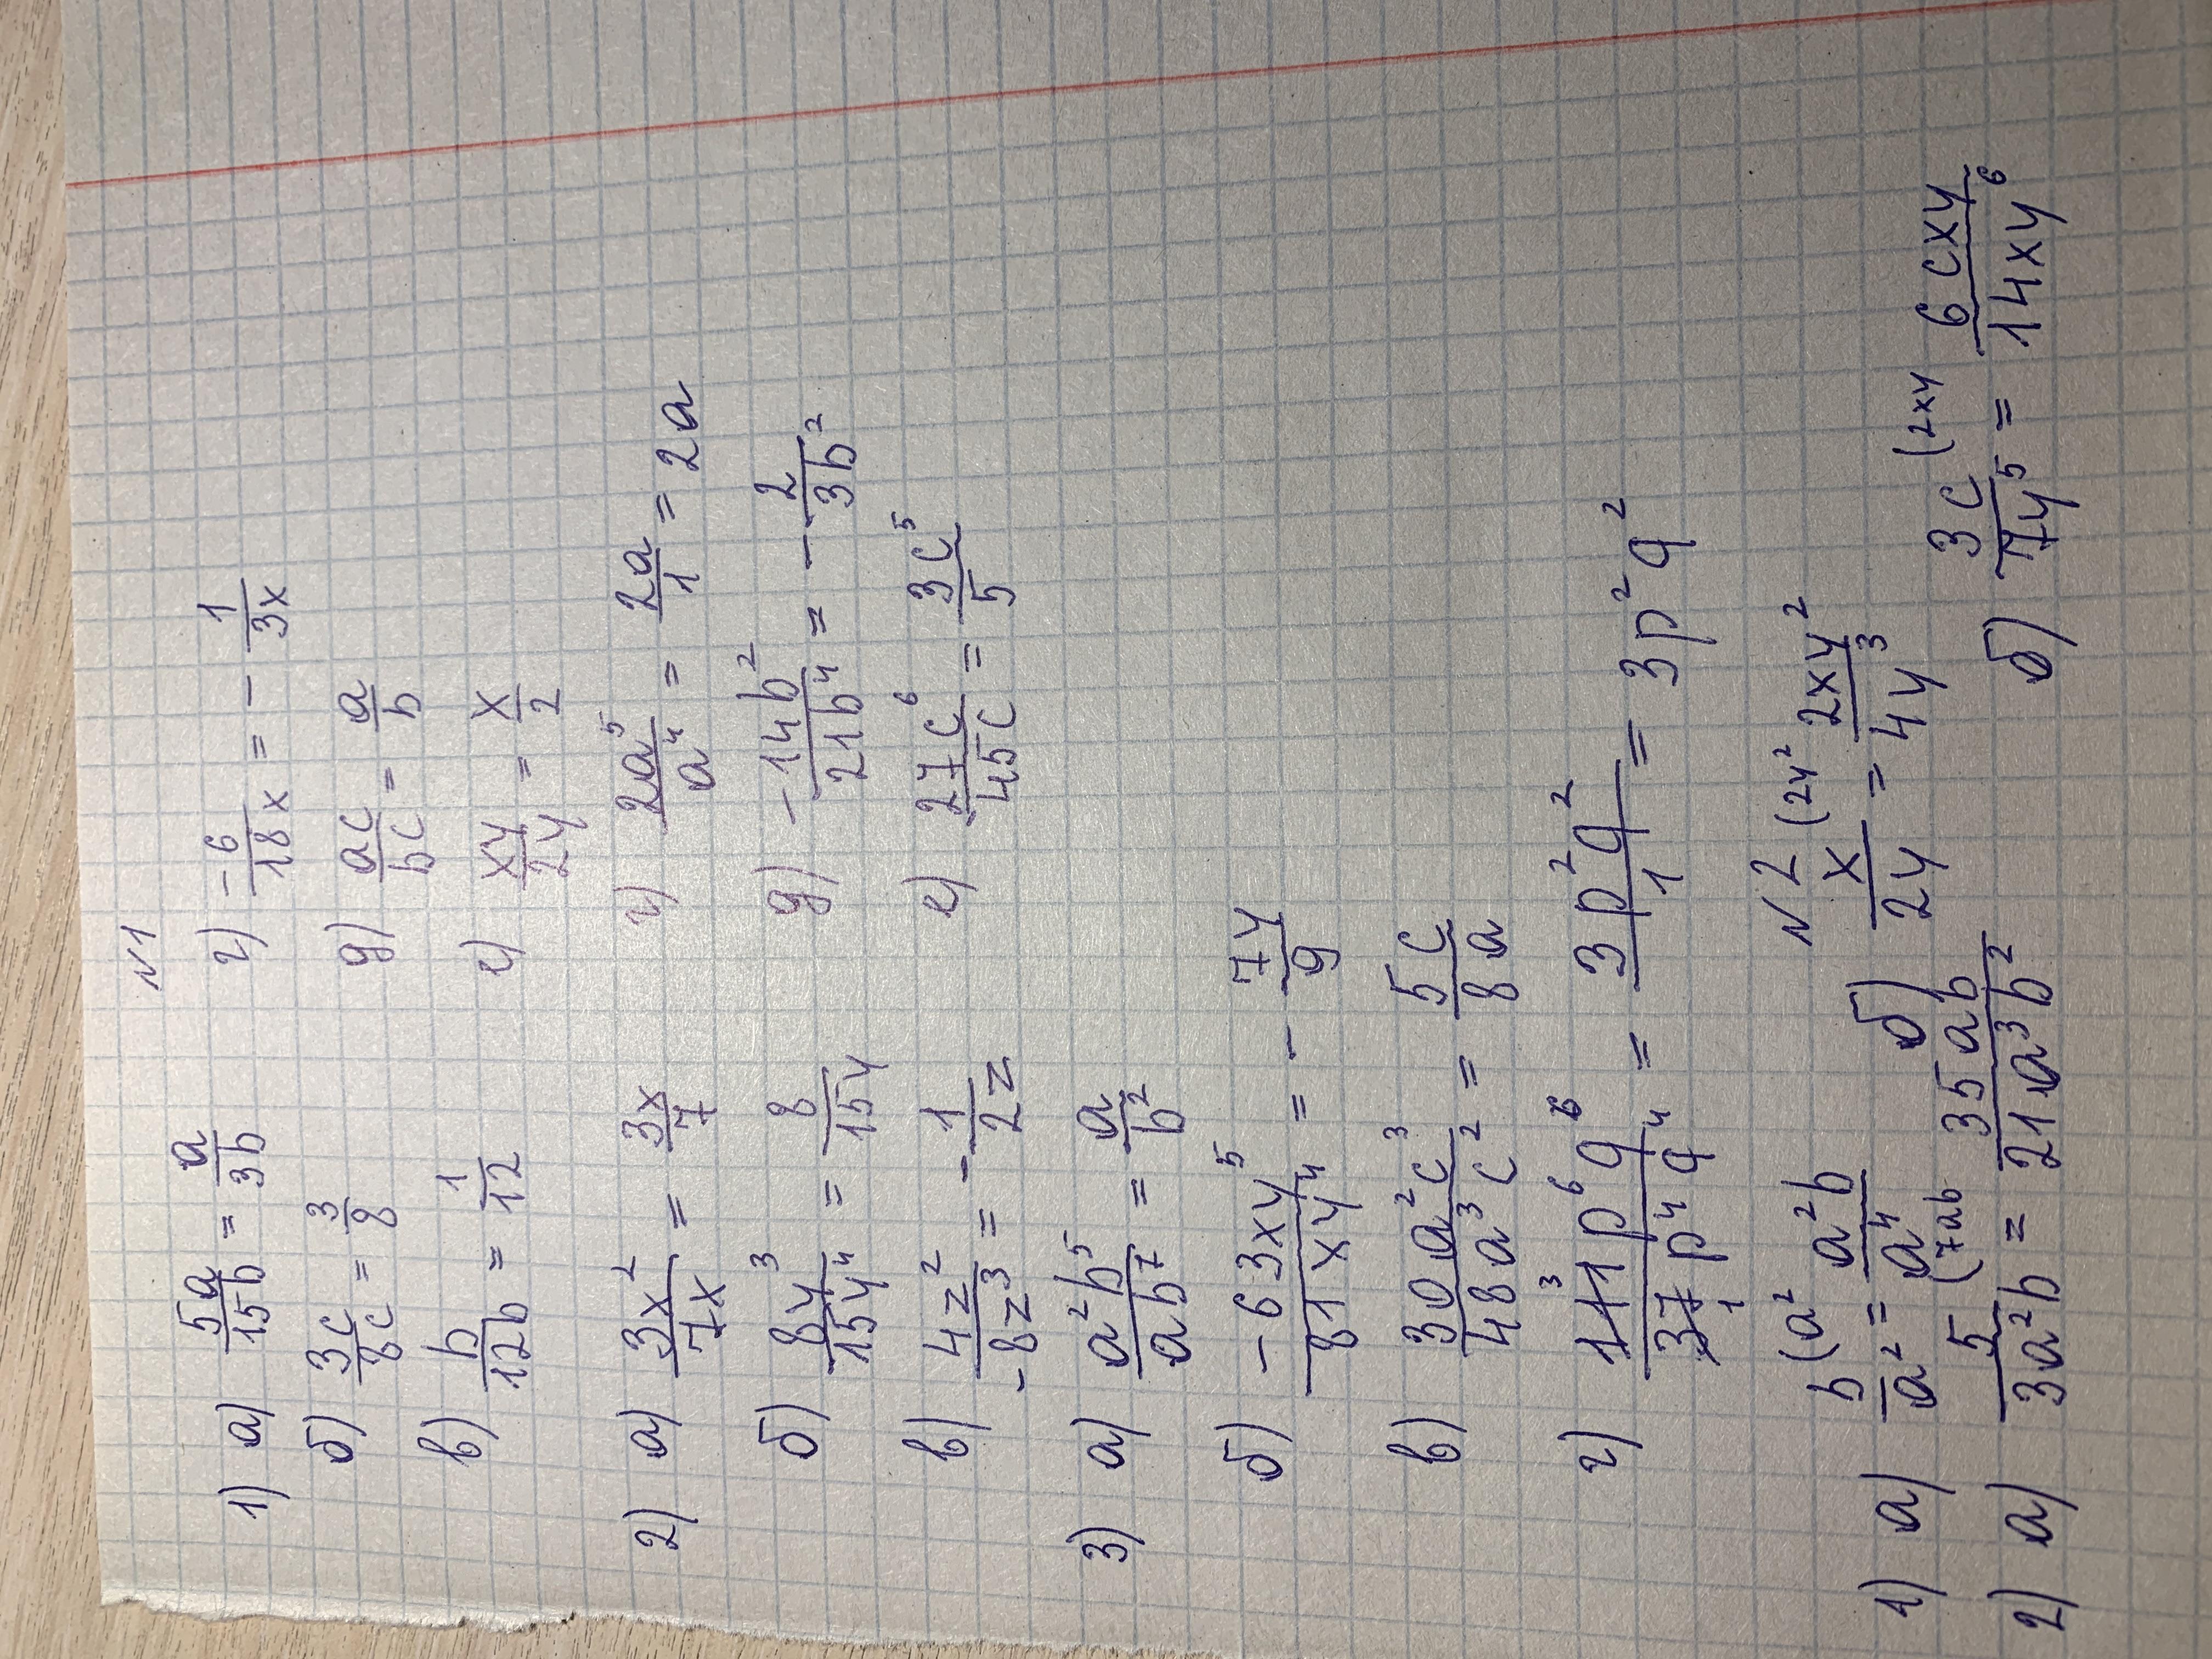 №1
1) а) 5a/15b = a/3b г) -6/18x = - 1/3x
б) 3c/8c = 3/8 д) ac/bc = a/b
в) b/12b = 1/12 е) xy/2y = x/2
2) а) 3x²/7x = 3x/7 г) 2a⁵/a⁴ = 2a/1 = 2a
б) 8y³/15y⁴ = 8/15y д) -14b²/21b⁴ = - 2/3b²
в) 4z²/-8z³ = - 1/2z е) 27c⁶/45c = 3c⁵/5
3) а) a²b⁵/ab⁷ = a/b²
б) -63xy⁵/81xy⁴ = - 7y/9
в) 30a²c³/48a³c² = 5c/8a
г) 111³p⁶q⁶/37₁p⁴q⁴ = 3p²q²/1 = 3p²q²
№2
1) а) b/a² (a² = a²b/a⁴ б) x/2y (2y² = 2xy²/4y³
2) а) 5/3a²b (7ab = 35ab/21a³b² б) 3c/7y⁵ (2xy = 6cxy/14xy⁶